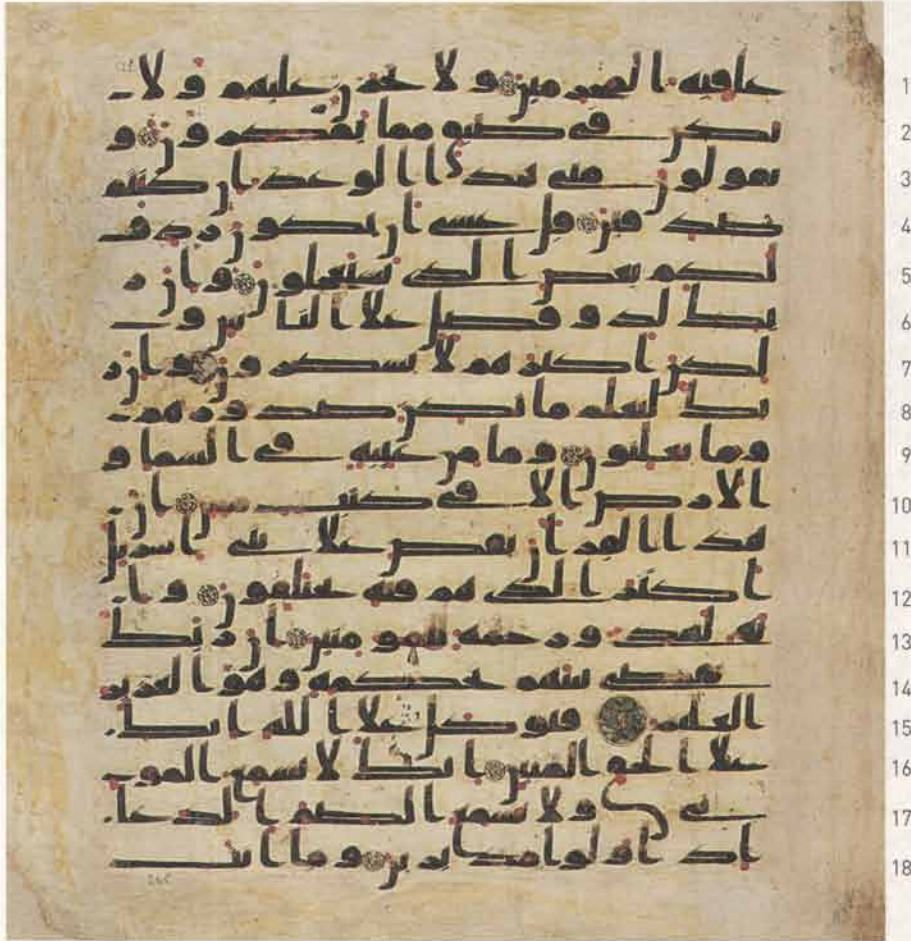 1 عاقبه المجرمين ولا تحزن عليهم ولا
2 تكن في ضيق مما يمكرون و
3 يقولون متى هذا الوعد ان كنتم
4 صدقين قل عسى ان يكون ردف
5 لكم بعض الذي تستعجلون وان ر
6 بك لذو فضل على الناس و
7 لكن اكثرهم لا يشكرون وان ر
8 بك ليعلم ما تكن صدورهم
9 وما يعلنون وما من غيبه في السما و
10 الارض الا في كتب مبين ان
11 هذا القرن يقص على بني اسريل
12 اكثر الذي هم فيه يختلفون وا
13 نه لهدى ورحمه للمومنين ان ربك
14 يقضي بينهم بحكمه وهو العزيز
15 العليم فتوكل على الله انك
16 على الحق المبين انك لا تسمع المو
17 تى ولا تسمع الصم الدعا
18 اذا ولوا مدبرين وما انت